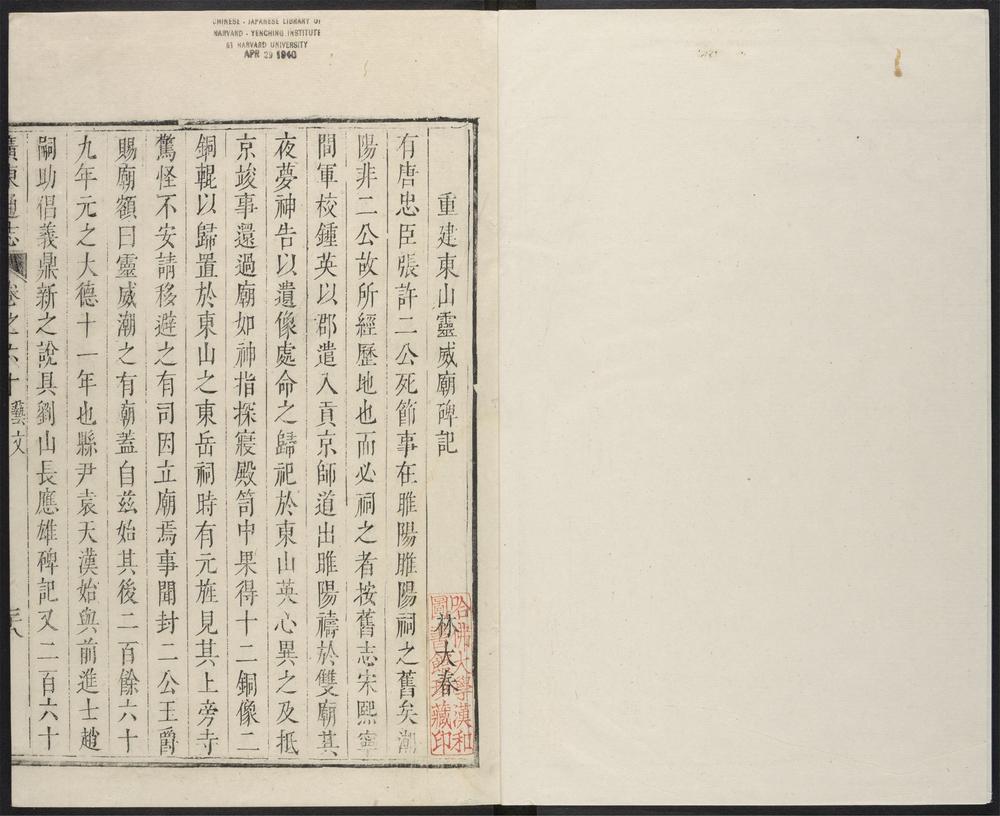 CHINESE - JAPANESE LIBRARY OF
HARVARD - YENCHING INSTITUTE
AT HARVARD UNIVERSITY
APR 29 1940
重建東山靈威廟碑記
林大春
哈佛大學漢和
圖書館珍藏印
有唐忠臣張許二公死節事在睢陽睢陽祠之舊矣潮
陽非二公故所經歷地也而必祠之者按舊志宋熙寧
間軍校鍾英以郡遣入貢京師道出睢陽禱於雙廟其
夜夢神告以遺像處命之歸祀於東山英心異之及抵
京竣事還過廟如神指探寢殿笥中果得十二銅像二
銅輥以歸置於東山之東岳祠時有元旌見其上旁寺
驚怪不安請移避之有司因立廟焉事聞封二公王爵
賜廟額曰靈威潮之有廟蓋自茲始其後二百餘六十
九年元之大德十一年也縣尹袁天漢始與前進士趙
嗣助倡義鼎新之說具劉山長應雄碑記又二百六十
廣東通志 卷之六十 藝文